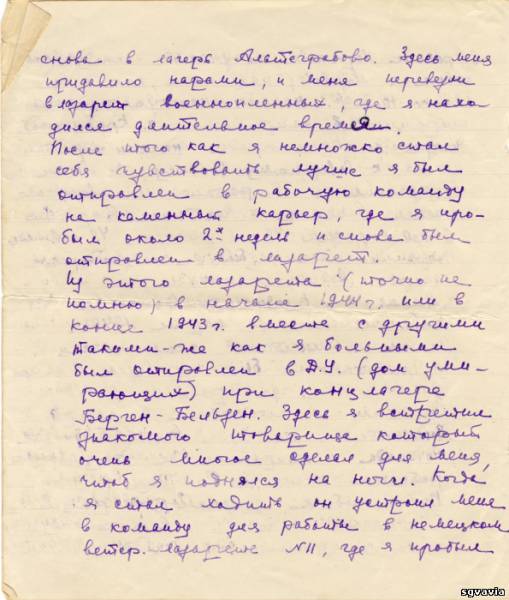 снова в лагерь Алатеграбово. Здесь меня
придавило нарами, и меня перевезли
в лазарет военнопленных, где я нахо-
дился длительное время.
После того как я немножко стал
себя чувствовать лучше я был
отправлен в рабочую команду
на каменный карьер, где я про-
был около 2х недель и снова был
отправлен в лазарет.
Из этого лазарета (точно не
помню) в начале 1944 г. или в
конце 1943 г. вместе с другими
такими-же как я больными
был отправлен в Д.У. (дом уми-
рающих) при концлагере
Берген-Бельзен. Здесь я встретил
знакомого товарища который
очень многое сделал для меня,
чтоб я поднялся на ноги. Когда
я стал ходить он устроил меня
в команду для работы в немецком
ветер. лазарете N11, где я пробыл
sgvavia